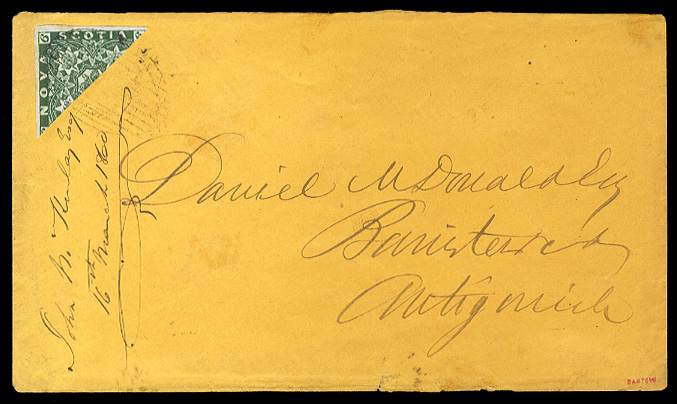 NOVA SCOTIA
Daniel McDonald Esq
Barrister &c &c
Antigonish
John N. Esq
16th March 1860